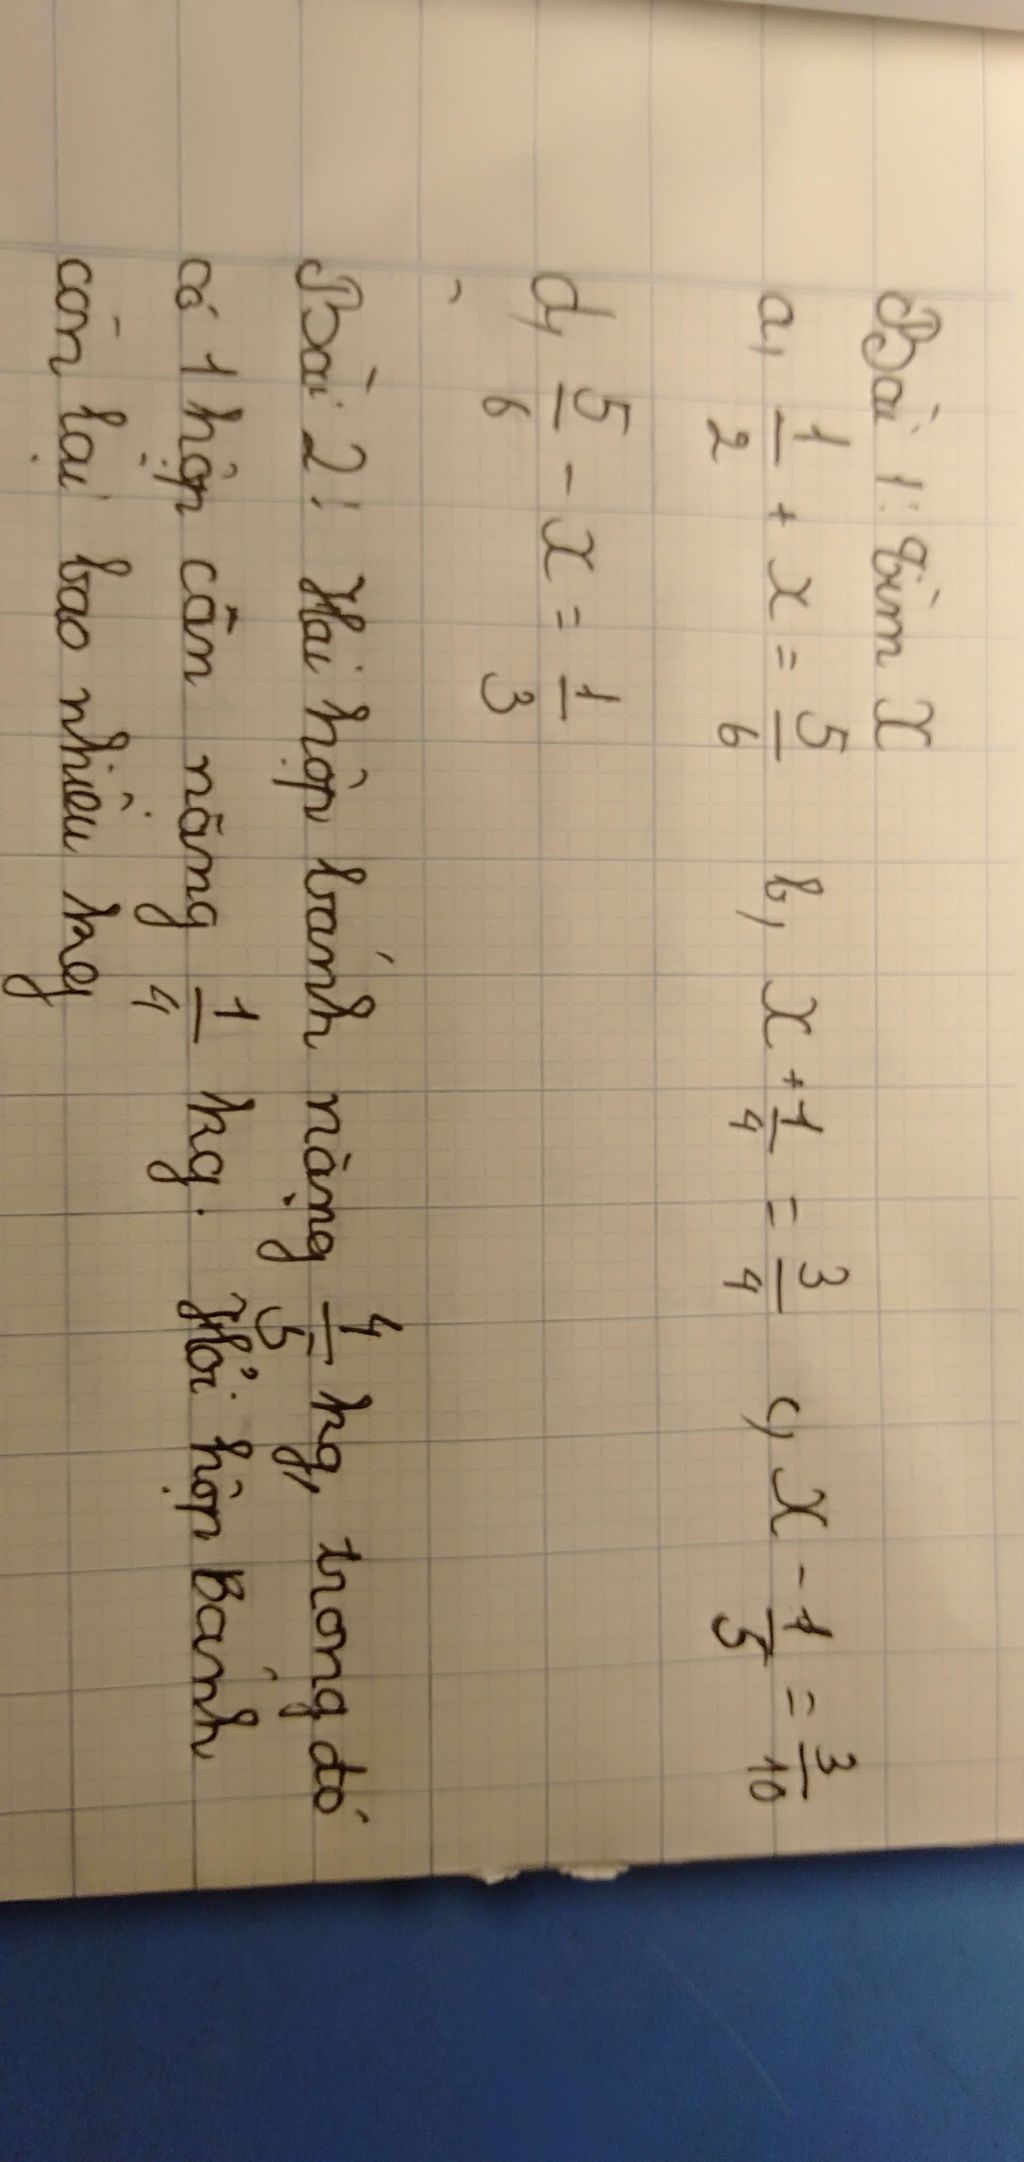 Bài 1: Tìm x
a, 1/2 + x = 5/6 b, x + 1/4 = 3/4 c, x - 1/5 = 3/10
d, 5/6 - x = 1/3
Bài 2: Hai hộp bánh nặng 4/5 kg, trong đó
có 1 hộp cân nặng 1/4 kg. Hỏi hộp Bánh
còn lại bao nhiêu kg